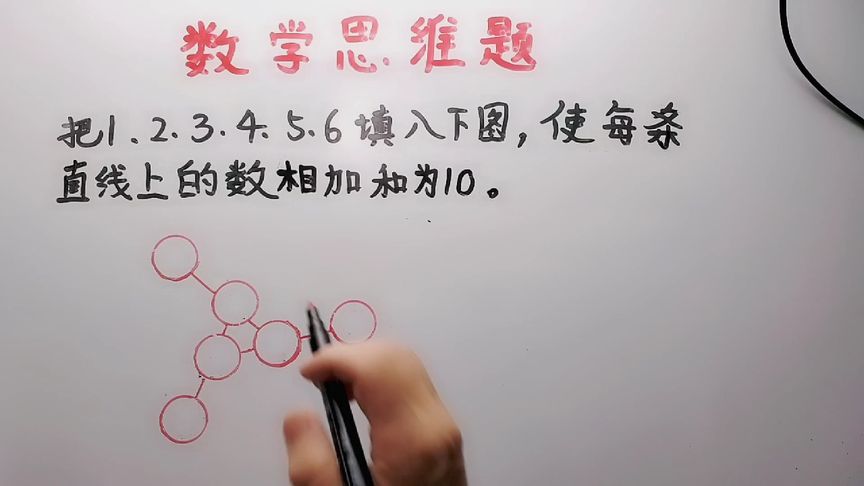 数学思维题
把1.2.3.4.5.6填入下图,使每条
直线上的数相加和为10。